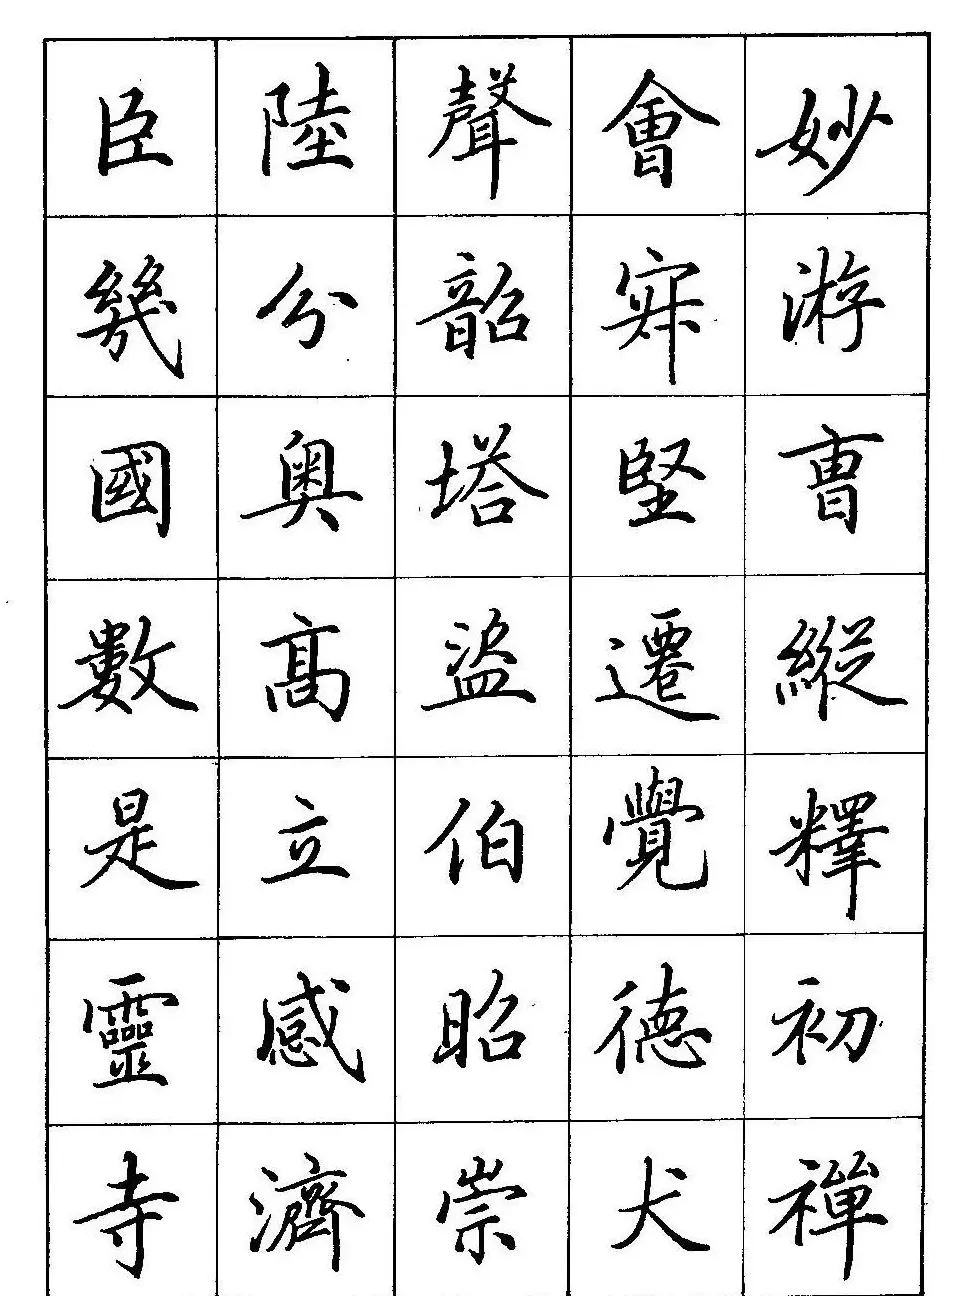 妙游曺縱釋初禪
會堅遷覺德犬
聲韶塔盜伯昭崇
陸分奧髙立感濟
臣幾國數是靈寺